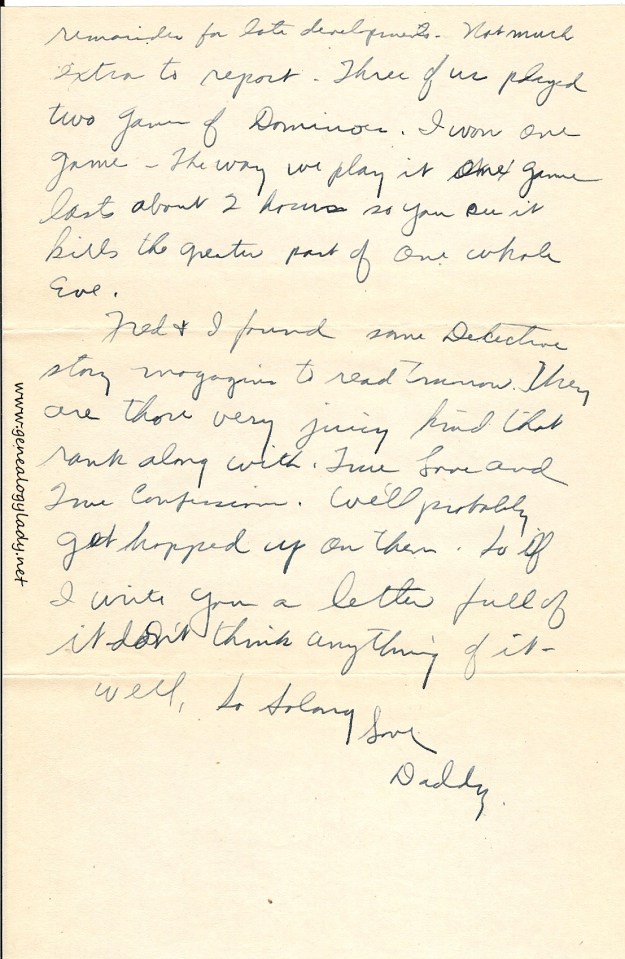 remainder for late developments. Not much
extra to report - Three of us played
two games of Dominoes. I won one
game - The way we play it one game
lasts about 2 hours so you see it
kills the greater part of one whole
Eve.
Fred & I found some Detective
story magazines to read Tomorrow. They
are those very juicy kind that
rank along with. True Love and
True Confession. We'll probably
get hopped up on them. So if
I write you a letter full of
it don't think anything of it -
well, so solong
Love
Daddy.
www.genealogylady.net